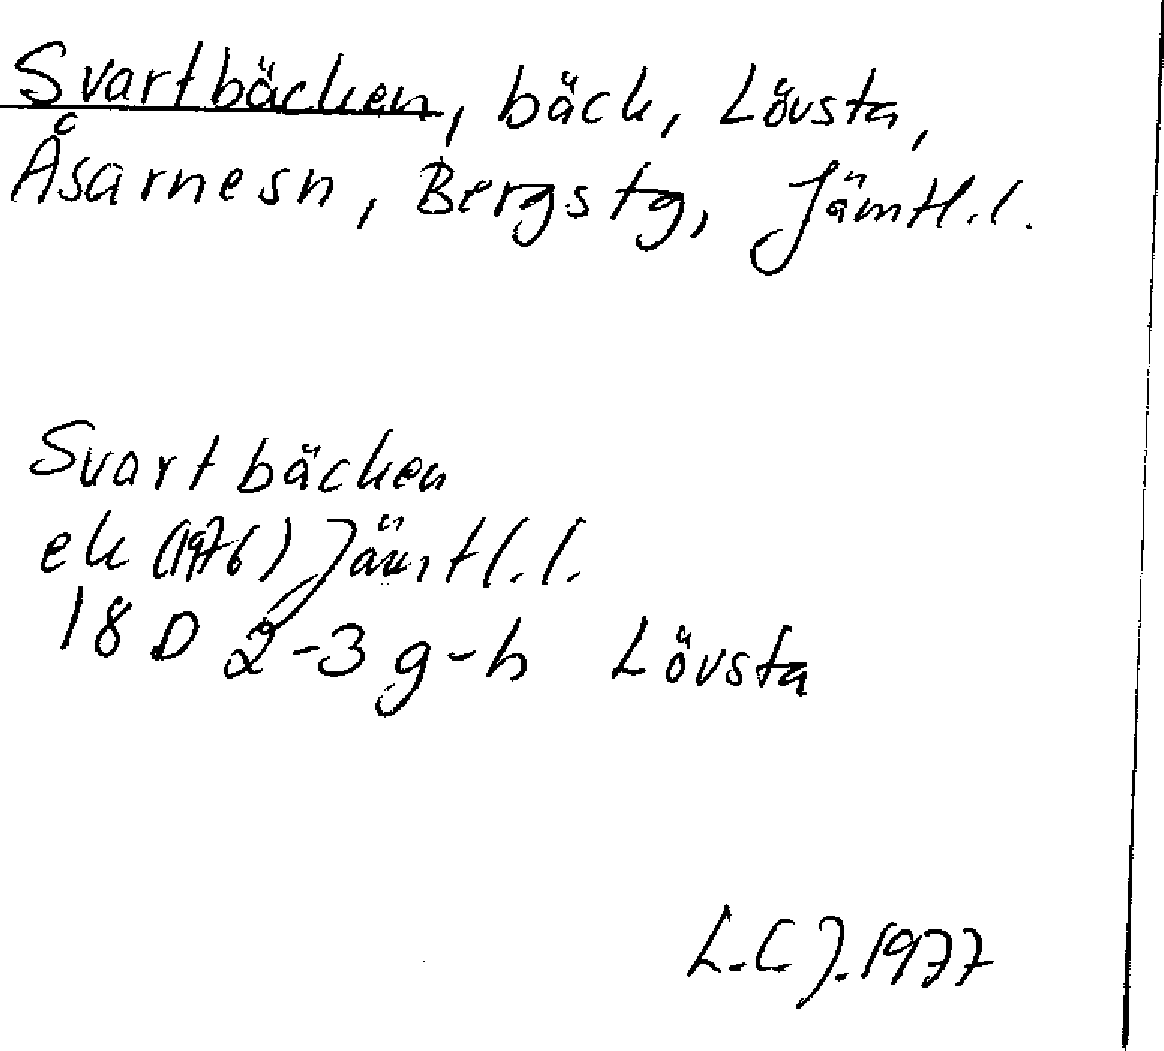 Svartbäcken, bäck, Lövsta,
Åsarnesn, Bergstg, Jämtl.l.
Svartbäcken
ek (1976) Jämtl.l.
18 D 2-3 g-h Lövsta
L.C J. 1977